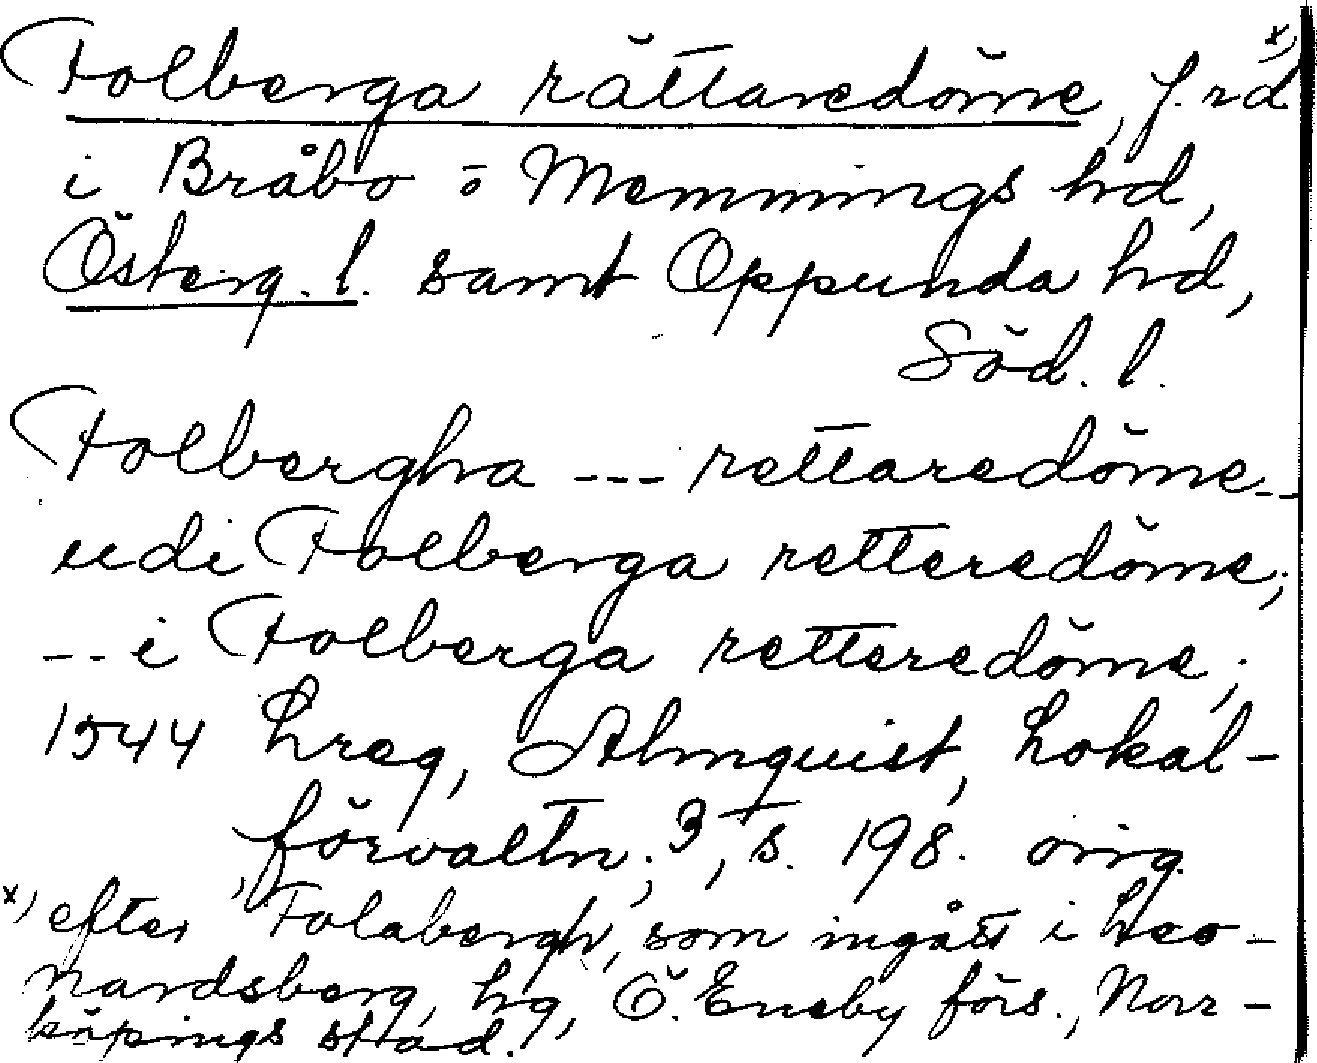 Folberga rättaredöme, f. rd x)
i Bråbo o Memmings hd,
Österg. l. samt Oppunda hd,
Söd. l.
Folbergha --- rettaredöme --
udi Folberga retteredöme;
-- i Folberga retteredöme;
1544 Lreg, Almquist, Lokal-
förvaltn. 3, s. 198. orig.
x) efter Folabergh, som ingått i Leo-
nardsberg, hg, Ö. Eneby förs., Norr-
köpings stad.